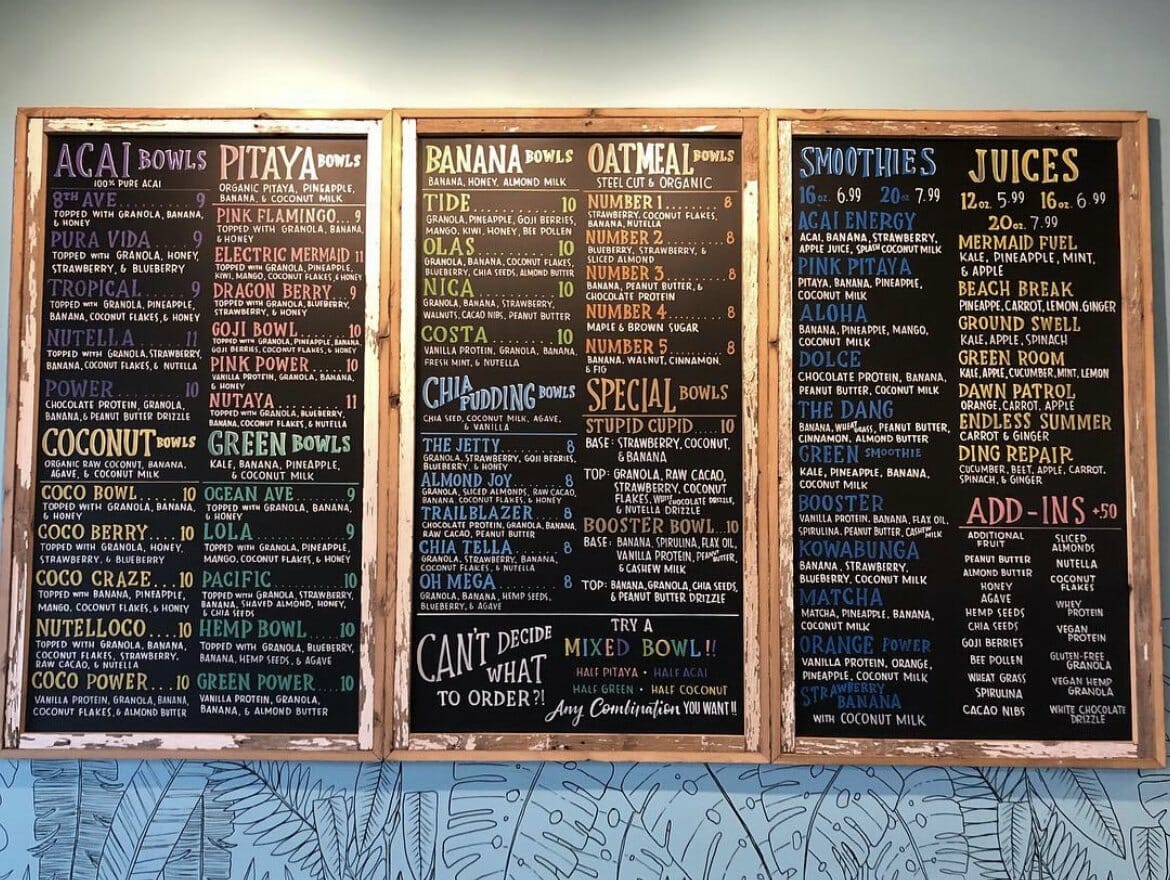 ACAI BOWLS
100% PURE ACAI
8TH AVE 9
TOPPED WITH GRANOLA, BANANA,
& HONEY
PURA VIDA 9
TOPPED WITH GRANOLA, HONEY,
STRAWBERRY, & BLUEBERRY
TROPICAL 9
TOPPED WITH GRANOLA, PINEAPPLE,
BANANA, COCONUT FLAKES, & HONEY
NUTELLA 11
TOPPED WITH GRANOLA, STRAWBERRY,
BANANA, COCONUT FLAKES, & NUTELLA
POWER 10
CHOCOLATE PROTEIN, GRANOLA,
BANANA, & PEANUT BUTTER DRIZZLE
COCONUT BOWLS
ORGANIC RAW COCONUT, BANANA,
AGAVE, & COCONUT MILK
COCO BOWL..... 10
TOPPED WITH GRANOLA, BANANA,
& HONEY
COCO BERRY.... 10
TOPPED WITH GRANOLA, HONEY,
STRAWBERRY, & BLUEBERRY
COCO CRAZE... 10
TOPPED WITH BANANA, PINEAPPLE,
MANGO, COCONUT FLAKES, & HONEY
NUTELLOCO.... 10
TOPPED WITH GRANOLA, BANANA,
COCONUT FLAKES, STRAWBERRY,
RAW CACAO, & NUTELLA
COCO POWER... 10
VANILLA PROTEIN, GRANOLA, BANANA,
COCONUT FLAKES, & ALMOND BUTTER
PITAYA BOWLS
ORGANIC PITAYA, PINEAPPLE,
BANANA, & COCONUT MILK
PINK FLAMINGO... 9
TOPPED WITH GRANOLA, BANANA,
& HONEY
ELECTRIC MERMAID 11
TOPPED WITH GRANOLA, PINEAPPLE,
KIWI, MANGO, COCONUT FLAKES, & HONEY
DRAGON BERRY... 9
TOPPED WITH GRANOLA, BLUEBERRY,
STRAWBERRY, & HONEY
GOJI BOWL...... 10
TOPPED WITH GRANOLA, PINEAPPLE, BANANA,
GOJI BERRIES, COCONUT FLAKES, & HONEY
PINK POWER..... 10
VANILLA PROTEIN, GRANOLA, BANANA,
& HONEY
NUTAYA........ 11
TOPPED WITH GRANOLA, BLUEBERRY,
BANANA, COCONUT FLAKES, & NUTELLA
GREEN BOWLS
KALE, BANANA, PINEAPPLE,
& COCONUT MILK
OCEAN AVE..... 9
TOPPED WITH GRANOLA, BANANA,
& HONEY
LOLA.......... 9
TOPPED WITH GRANOLA, PINEAPPLE,
MANGO, COCONUT FLAKES, & HONEY
PACIFIC....... 10
TOPPED WITH GRANOLA, STRAWBERRY,
BANANA, SHAVED ALMOND, HONEY,
& CHIA SEEDS
HEMP BOWL.... 10
TOPPED WITH GRANOLA, BLUEBERRY,
BANANA, HEMP SEEDS, & AGAVE
GREEN POWER.... 10
VANILLA PROTEIN, GRANOLA,
BANANA, & ALMOND BUTTER
BANANA BOWLS
BANANA, HONEY, ALMOND MILK
TIDE 10
GRANOLA, PINEAPPLE, GOJI BERRIES,
MANGO, KIWI, HONEY, BEE POLLEN
OLAS 10
GRANOLA, BANANA, COCONUT FLAKES,
BLUEBERRY, CHIA SEEDS, ALMOND BUTTER
NICA 10
GRANOLA, BANANA, STRAWBERRY,
WALNUTS, CACAO NIBS, PEANUT BUTTER
COSTA 10
VANILLA PROTEIN, GRANOLA, BANANA,
FRESH MINT, & NUTELLA
CHIA PUDDING BOWLS
CHIA SEED, COCONUT MILK, AGAVE,
& VANILLA
THE JETTY 8
GRANOLA, STRAWBERRY, GOJI BERRIES,
BLUEBERRY, & HONEY
ALMOND JOY 8
GRANOLA, SLICED ALMONDS, RAW CACAO,
BANANA, COCONUT FLAKES, & HONEY
TRAILBLAZER 8
CHOCOLATE PROTEIN, GRANOLA, BANANA,
RAW CACAO, PEANUT BUTTER
CHIA TELLA 8
GRANOLA, STRAWBERRY, BANANA,
COCONUT FLAKES, & NUTELLA
OH MEGA 8
GRANOLA, BANANA, HEMP SEEDS,
BLUEBERRY, & AGAVE
OATMEAL BOWLS
STEEL CUT & ORGANIC
NUMBER 1 8
STRAWBERRY, COCONUT FLAKES,
BANANA, NUTELLA
NUMBER 2 8
BLUEBERRY, STRAWBERRY, &
SLICED ALMOND
NUMBER 3 8
BANANA, PEANUT BUTTER, &
CHOCOLATE PROTEIN
NUMBER 4 8
MAPLE & BROWN SUGAR
NUMBER 5 8
BANANA, WALNUT, CINNAMON,
& FIG
SPECIAL BOWLS
STUPID CUPID.... 10
BASE: STRAWBERRY, COCONUT,
& BANANA
TOP: GRANOLA, RAW CACAO,
STRAWBERRY, COCONUT
FLAKES, WHITE CHOCOLATE DRIZZLE,
& NUTELLA DRIZZLE
BOOSTER BOWL..10
BASE: BANANA, SPIRULINA, FLAX OIL,
VANILLA PROTEIN, PEANUT BUTTER,
& CASHEW MILK
TOP: BANANA, GRANOLA, CHIA SEEDS,
& PEANUT BUTTER DRIZZLE
CAN'T DECIDE
WHAT
TO ORDER?!
TRY A
MIXED BOWL!!
HALF PITAYA • HALF ACAI
HALF GREEN • HALF COCONUT
Any Combination YOU WANT!!
SMOOTHIES
16oz. 6.99 20oz 7.99
ACAI ENERGY
ACAI, BANANA, STRAWBERRY,
APPLE JUICE, SPLASH COCONUT MILK
PINK PITAYA
PITAYA, BANANA, PINEAPPLE,
COCONUT MILK
ALOHA
BANANA, PINEAPPLE, MANGO,
COCONUT MILK
DOLCE
CHOCOLATE PROTEIN, BANANA,
PEANUT BUTTER, COCONUT MILK
THE DANG
BANANA, WHEATGRASS, PEANUT BUTTER,
CINNAMON, ALMOND BUTTER
GREEN SMOOTHIE
KALE, PINEAPPLE, BANANA,
COCONUT MILK
BOOSTER
VANILLA PROTEIN, BANANA, FLAX OIL,
SPIRULINA, PEANUT BUTTER, CASHEW MILK
KOWABUNGA
BANANA, STRAWBERRY,
BLUEBERRY, COCONUT MILK
MATCHA
MATCHA, PINEAPPLE, BANANA,
COCONUT MILK
ORANGE POWER
VANILLA PROTEIN, ORANGE,
PINEAPPLE, COCONUT MILK
STRAWBERRY
BANANA
WITH COCONUT MILK
JUICES
12oz. 5.99 16oz. 6.99
20oz. 7.99
MERMAID FUEL
KALE, PINEAPPLE, MINT,
& APPLE
BEACH BREAK
PINEAPPLE, CARROT, LEMON, GINGER
GROUND SWELL
KALE, APPLE, SPINACH
GREEN ROOM
KALE, APPLE, CUCUMBER, MINT, LEMON
DAWN PATROL
ORANGE, CARROT, APPLE
ENDLESS SUMMER
CARROT & GINGER
DING REPAIR
CUCUMBER, BEET, APPLE, CARROT,
SPINACH, & GINGER
ADD-INS +50
ADDTIONAL
FRUIT
PEANUT BUTTER
ALMOND BUTTER
HONEY
AGAVE
HEMP SEEDS
CHIA SEEDS
GOJI BERRIES
BEE POLLEN
WHEAT GRASS
SPIRULINA
CACAO NIBS
SLICED
ALMONDS
NUTELLA
COCONUT
FLAKES
WHEY
PROTEIN
VEGAN
PROTEIN
GLUTEN-FREE
GRANOLA
VEGAN HEMP
GRANOLA
WHITE CHOCOLATE
DRIZZLE